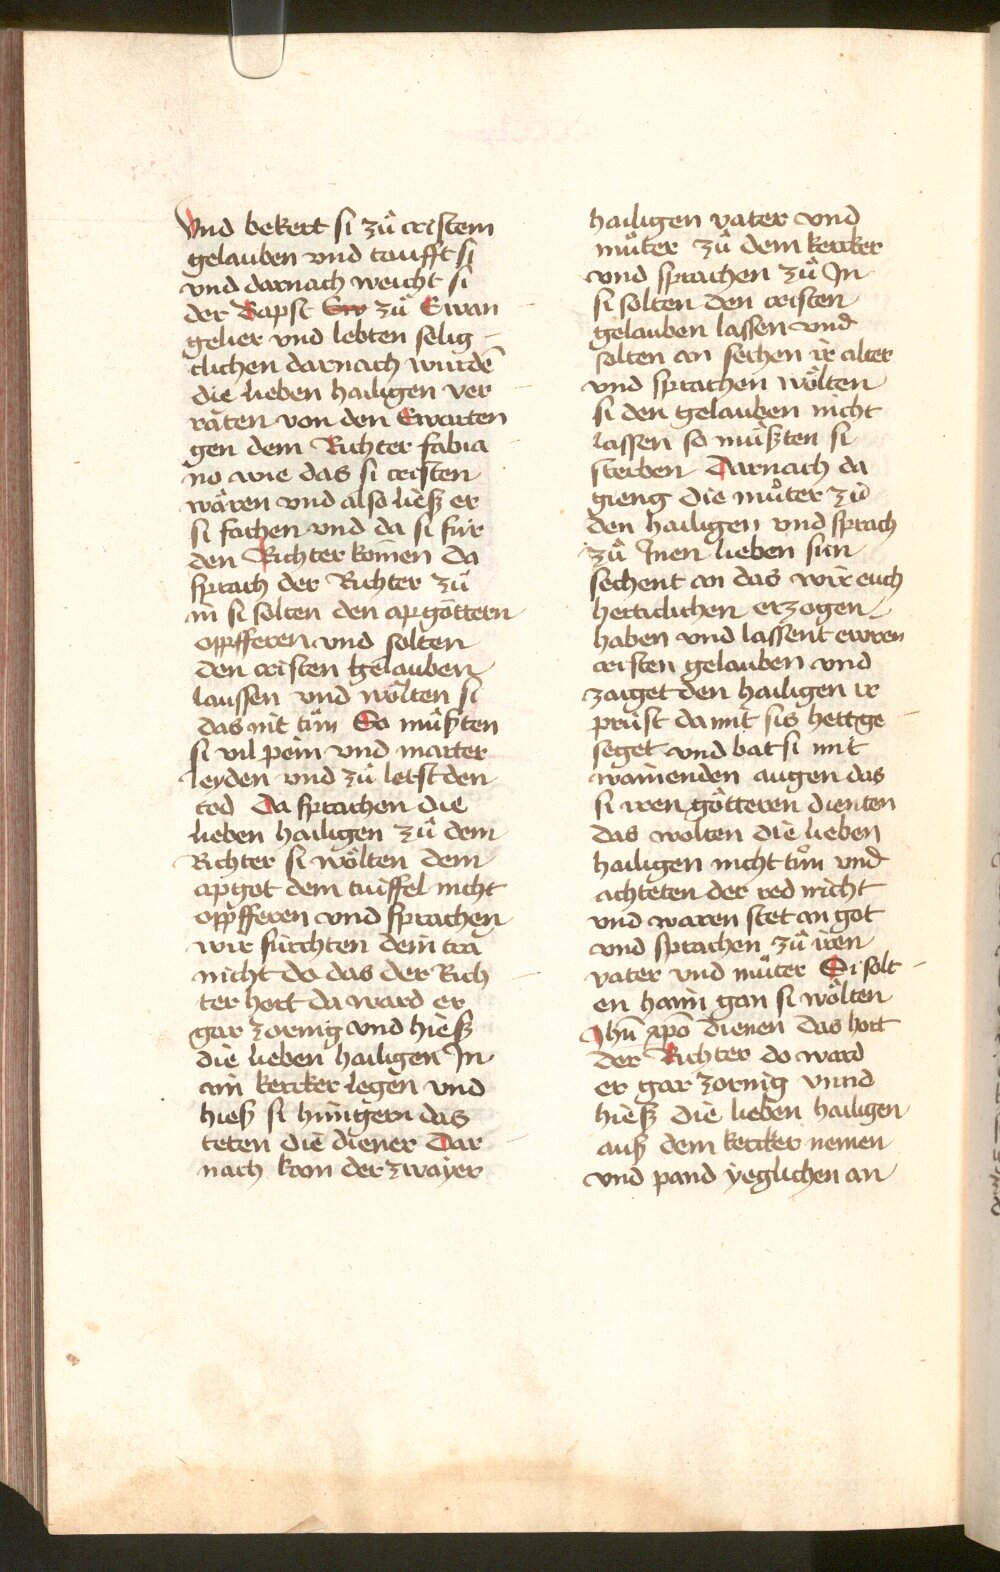 Vnd bekert si zů cristem
gelauben vnd taufft si
vnd darnach weicht si
der Bapst Ew zů Ewan
gelier vnd lebten selig
clichen darnach wurdē
die lieben hailigen ver
räten von den Ewarten
gen dem Richter fabia
no wie das si cristen
wären vnd also liesz er
si fachen vnd da si für
den Richter komen da
sprach der Richter zů
in si solten den apgöttern
opfferen vnd solten
den cristen gelauben
laussen vnd wölten si
das nit tůn So müsten
si vil pein vnd marter
leyden vnd zů letst den
tod Da sprachen die
lieben hailigen zů dem
Richter si wölten dem
apgot dem tuiffel nicht
opfferen vnd sprachen
wir fürchten dein tra
nicht do das der Rich
ter hort da ward er
gar zornig vnd hiesz
die lieben hailigen In
ain kercker legen vnd
hiesz si hungern das
teten die diener Dar
nach kom der zwayer
hailigen vater vnd
můter zů dem kercker
vnd sprachen zů In
si solten den cristen
gelauben lassen vnd
solten an sechen ir alter
vnd sprachen wölten
si den gelauben nicht
lassen so müszten si
sterben Darnach da
gieng die můter zů
den hailigen vnd sprach
zů Inen lieben sün
sechent an das wir euch
herttclichen erzogen
haben vnd lassent ewren
cristen gelauben vnd
zaiget den hailigen ir
prüst da mit sis hett ge
seget vnd bat si mit
wainenden augen das
si iren götteren dienten
das wolten die lieben
hailigen nicht tůn vnd
achteten der red nicht
vnd waren stet an got
vnd sprachen zů iren
vater vnd můter Si solt
en haim gan si wölten
Jhū xpō dienen das hort
der Richter do ward
er gar zornig vnnd
hiesz die lieben hailigen
ausz dem kercker nemen
vnd pand yeglichen an